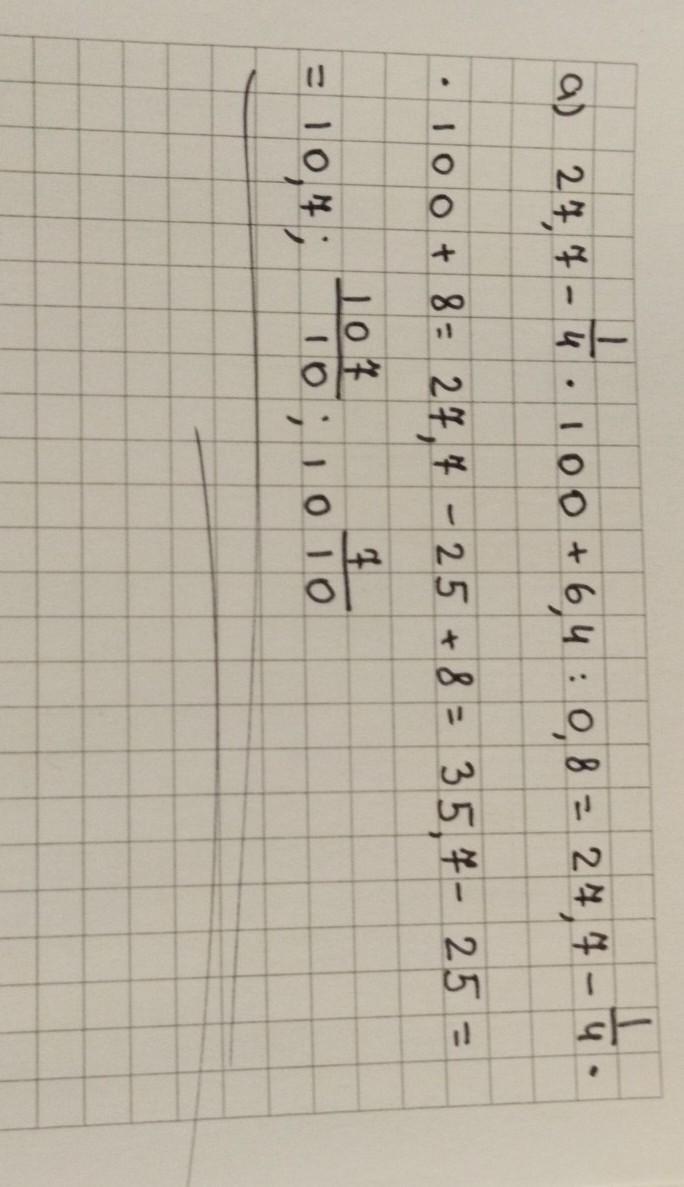 a) 27,7 - 1/4 · 100 + 6,4 : 0,8 = 27,7 - 1/4 ·
· 100 + 8 = 27,7 - 25 + 8 = 35,7 - 25 =
= 10,7; 107/10; 10 7/10